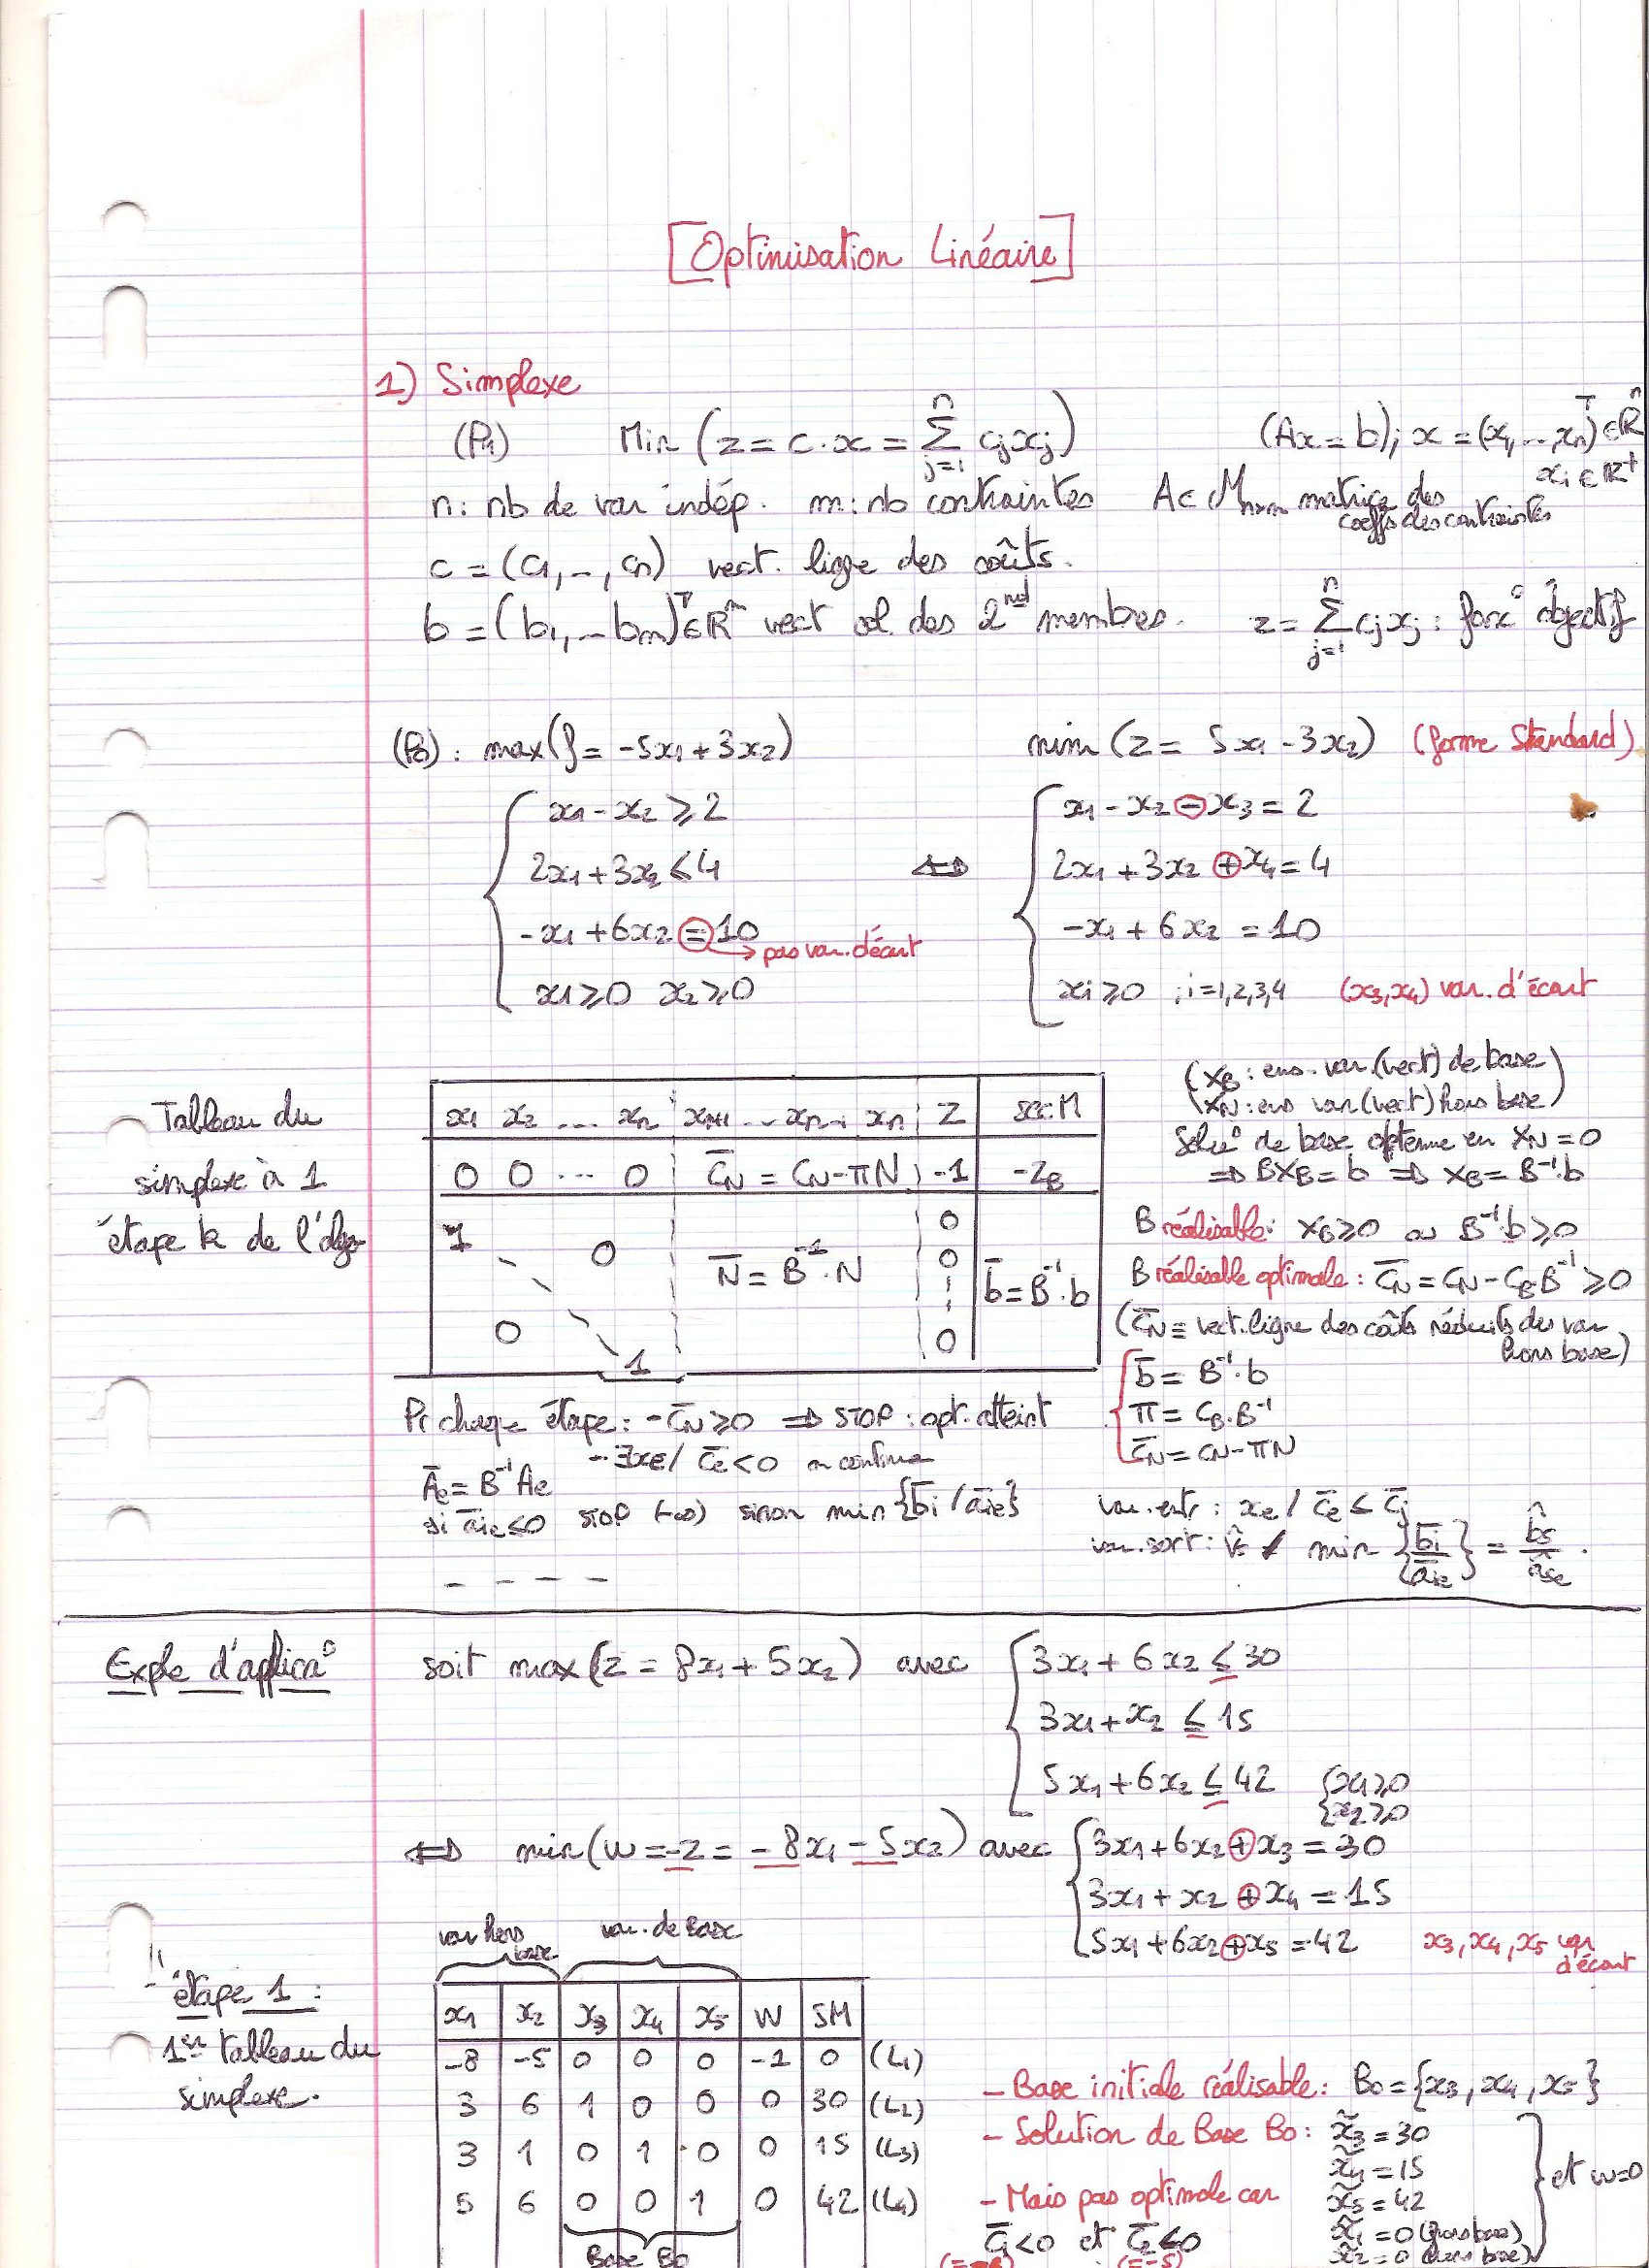 [Optimisation Linéaire]
1) Simplexe
(P1) Min (z = c·x = Σ_{j=1}^{n} cjxj) (Ax = b); x = (x1,..,xn)^T ∈ ℝ^n
xi ∈ ℝ+
n: nb de var indép. m: nb contraintes A ∈ M_{m×n} matrice des
coeffs des contraintes
c = (c1, .., cn) vect. ligne des coûts.
b = (b1, .. bm)^T ∈ ℝ^m vect col. des 2nd membres. z = Σ_{j=1}^{n} cjxj : fonc° objectif
(P0) : max(f = -5x1 + 3x2) min (z = 5x1 - 3x2) (forme Standard)
x1 - x2 ≥ 2 x1 - x2 - x3 = 2
2x1 + 3x2 ≤ 4 ⇔ 2x1 + 3x2 + x4 = 4
-x1 + 6x2 = 10 -x1 + 6x2 = 10
→ pas var. d'écart
x1 ≥ 0 x2 ≥ 0 xi ≥ 0 ; i = 1,2,3,4 (x3, x4) var. d'écart
Tableau du
simplexe à 1
étape k de l'algo
x1 x2 ... xn xn+1 .. xn-1 xn Z sec. M
0 0 ... 0 C̄N = CN - πN -1 -ZB
1 0 0
N̄ = B^-1·N 0 b̄ = B^-1·b
0 1 0
(XB : ens. var.(vect) de base
XN : ens var(vect) hors base)
Solu° de base obtenue en XN = 0
⇒ BXB = b ⇒ XB = B^-1·b
B réalisable : XB ≥ 0 ou B^-1·b ≥ 0
B réalisable optimale : C̄N = CN - CB·B^-1 ≥ 0
(C̄N = vect. ligne des coûts réduits des var
hors base)
b̄ = B^-1·b
π = CB·B^-1
C̄N = CN - πN
Pr chaque étape : - C̄N ≥ 0 ⇒ STOP : opt. atteint
- ∃xe / C̄e < 0 on continue
Āe = B^-1 Ae
si āie ≤ 0 STOP (-∞) sinon min {b̄i / āie}
var. entr : xe / C̄e ≤ C̄j
var. sort : min {b̄i / āie} = b̂s / âse .
- - - -
Exple d'applica°
soit max (z = 8x1 + 5x2) avec 3x1 + 6x2 ≤ 30
3x1 + x2 ≤ 15
5x1 + 6x2 ≤ 42 x1 ≥ 0
x2 ≥ 0
⇔ min (w = -z = -8x1 - 5x2) avec 3x1 + 6x2 + x3 = 30
3x1 + x2 + x4 = 15
5x1 + 6x2 + x5 = 42 x3, x4, x5 var
d'écart
étape 1 :
1er tableau du
simplexe.
var hors base var. de Base
x1 x2 x3 x4 x5 W SM
-8 -5 0 0 0 -1 0 (L1)
3 6 1 0 0 0 30 (L2)
3 1 0 1 0 0 15 (L3)
5 6 0 0 1 0 42 (L4)
Base B0
- Base initiale réalisable : B0 = {x3, x4, x5}
- Solution de Base B0 : x̃3 = 30
x̃4 = 15
x̃5 = 42
x̃1 = 0 (hors base)
x̃2 = 0 (hors base)
et w = 0
- Mais pas optimale car
C̄1 < 0 et C̄2 < 0
(= -8) (= -5)